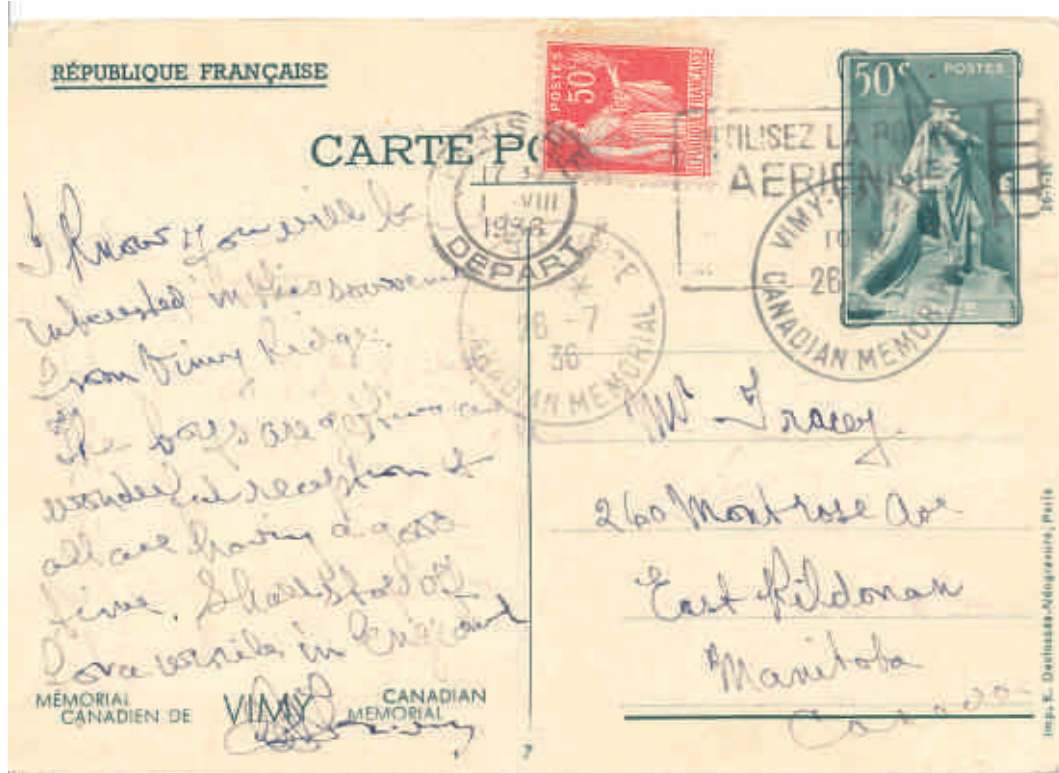 RÉPUBLIQUE FRANÇAISE
CARTE PO
POSTES
50c
RÉPUBLIQUE FRANÇAISE
50c POSTES
UTILISEZ LA PO
AERIENNE
17
1 VIII
1936
DEPART
CE
26 -7
36
CANADIAN MEMORIAL
VIMY
26
CANADIAN MEMORIAL
I know you will be
interested in this souvenir
from Vimy Ridge.
The boys are getting a
wonderful reception &
all are having a good
time. Shall stop off
for a while in England
Mr Tracey.
260 Montrose Ave
East Kildonan
Manitoba
Canada
MÉMORIAL
CANADIEN DE
VIMY
CANADIAN
MEMORIAL
7